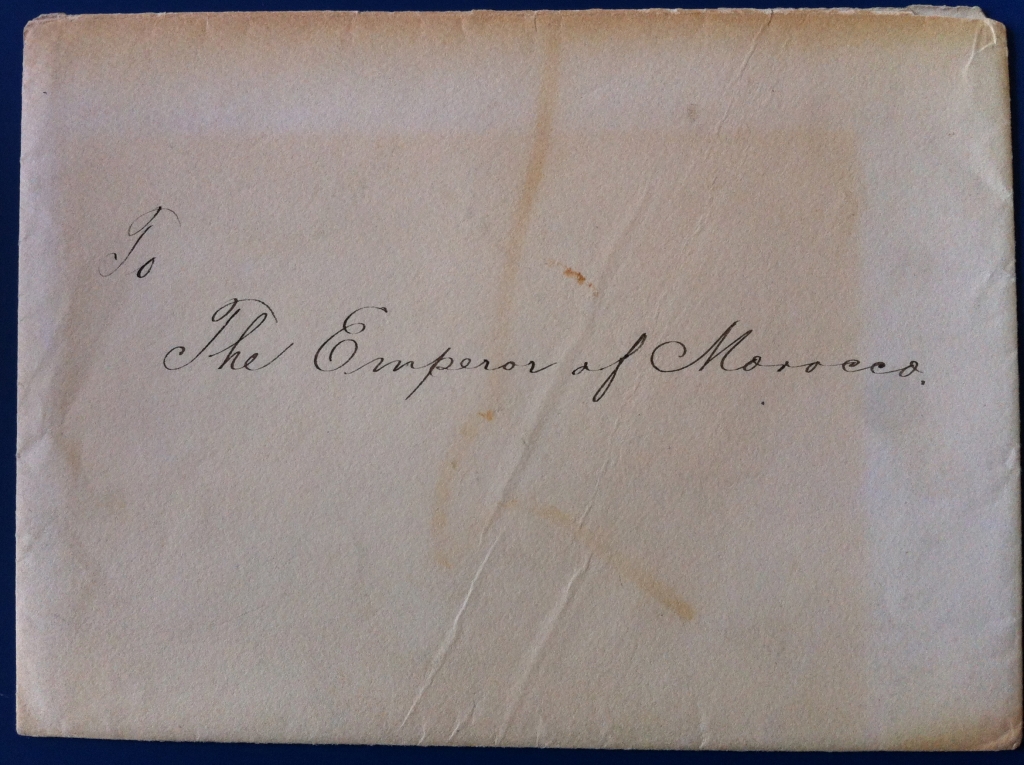 To
The Emperor of Morocco.